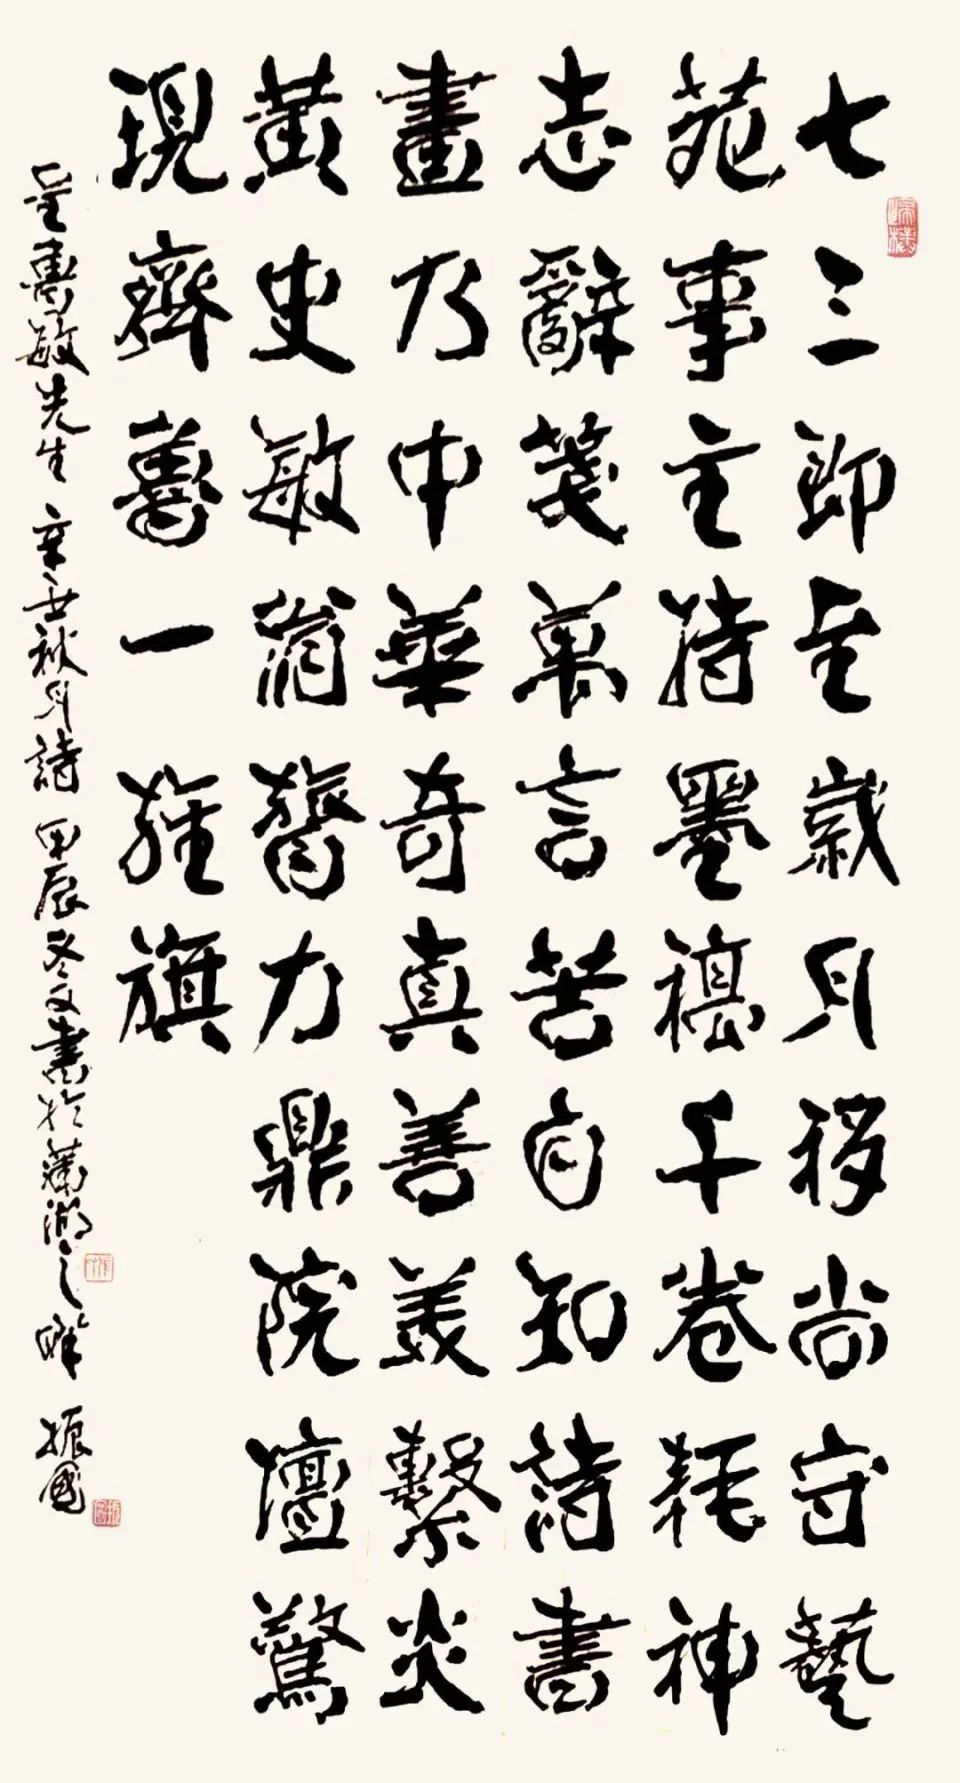 七三即至歲月移尚守藝
苑事主持墨穩千卷耗神
志辭箋萬言苦自知詩書
畫乃中華奇真善美繫炎
黃史敏翁膂力鼎院壇驚
現齊壽一旌旗
呈壽敏先生 辛丑秋月詩 甲辰冬書於湖之畔 振國